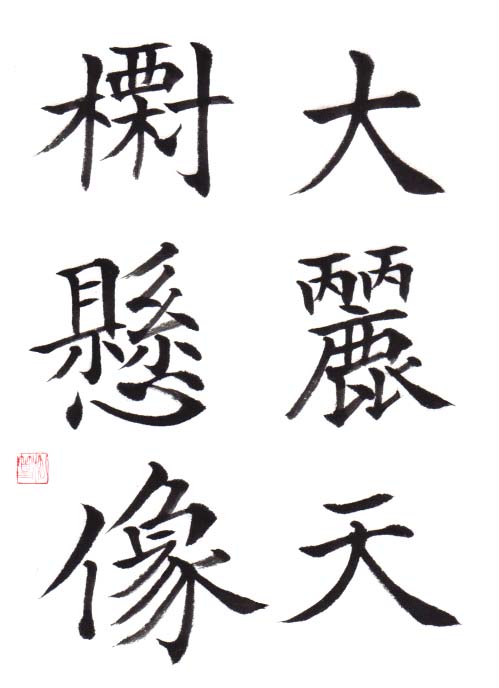 大麗天
懸像